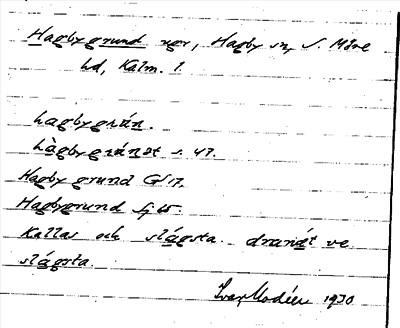 Hagbygrund ugr, Hagby sn, S. Möre
hd, Kalm. l.
hagbygrún.
hàgbygrúndt s. 47.
Hagby grund GS 17.
Hagbygrund Sj 65.
Kallas och slágsta dranát ve
slágsta
Ivar Modéer 1930